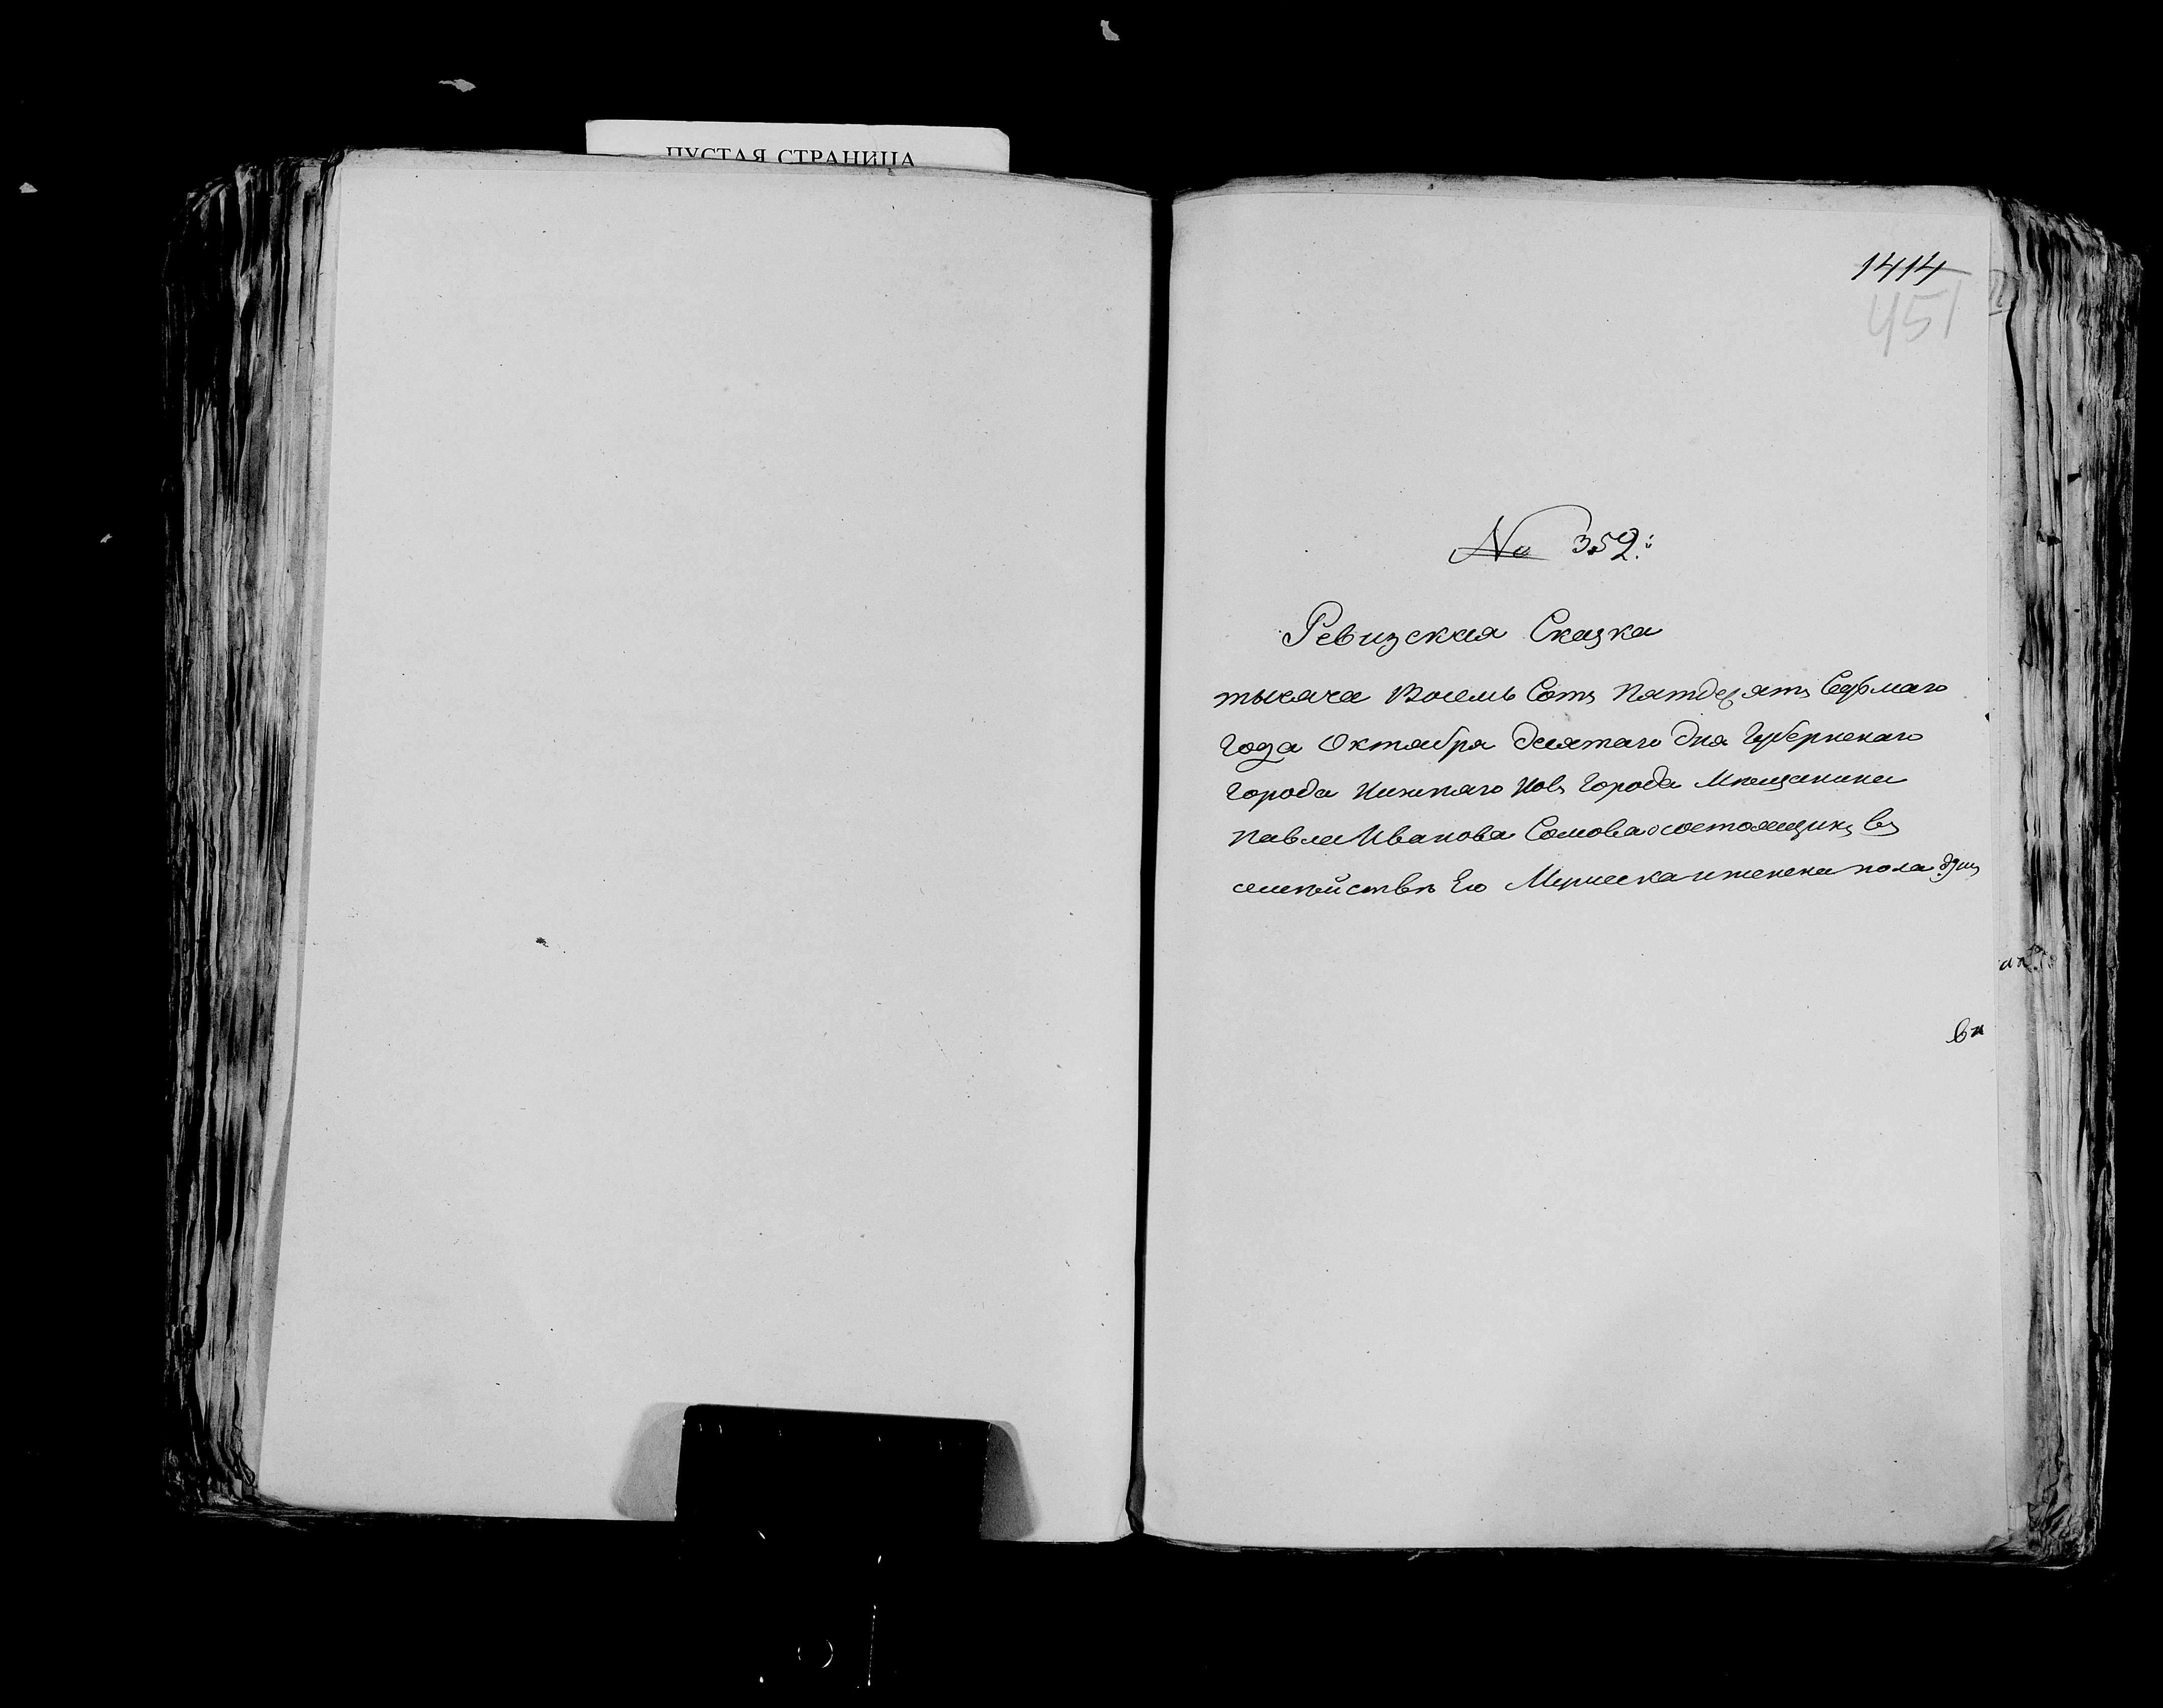 ПУСТАЯ СТРАНИЦА
1414
451
№ 352:
Ревизская Сказка
тысяча Восемь Сотъ Пятдесятъ Седьмаго
Года Октября десятаго дня Губернскаго
города Нижняго Новъ Города Мѣщанина
Павла Иванова Сомова о состоящихъ въ
семѣйствѣ Его Мужеска и женска пола душъ